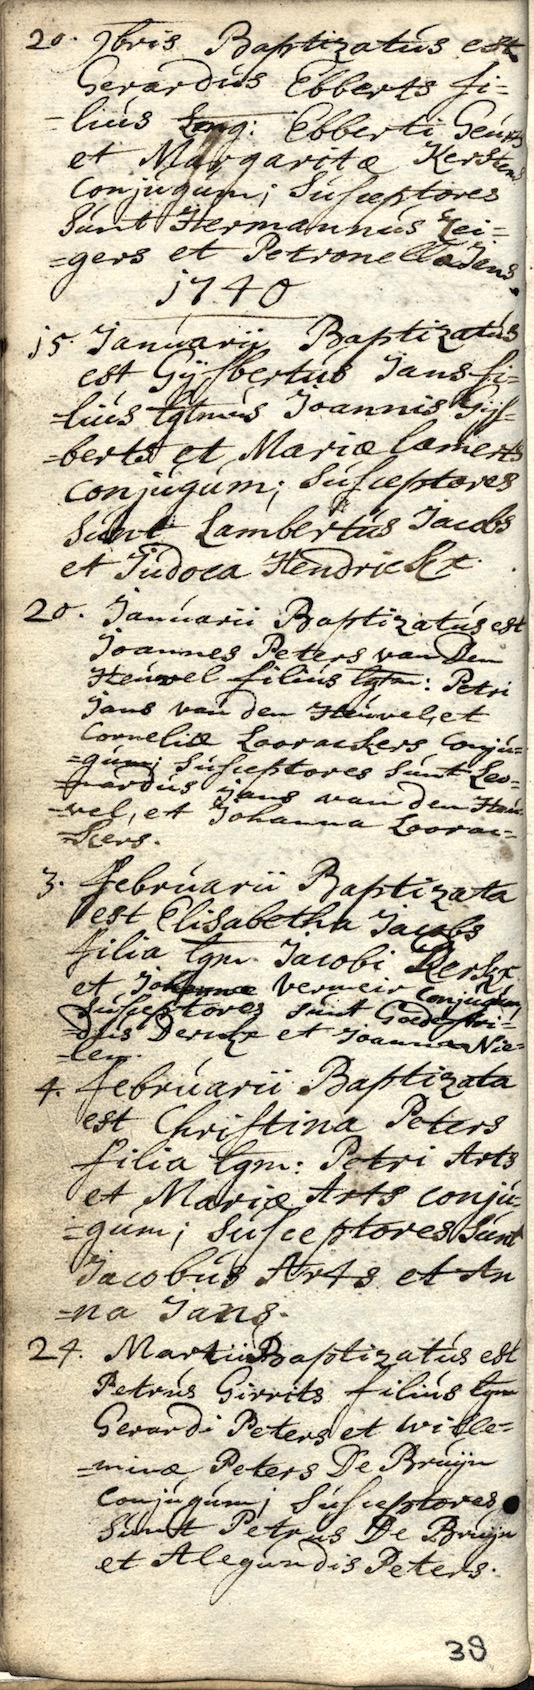 20. 9bris Baptizatús est
Gerardús Ebberts fi=
=liús Lmg: Ebberti Geúrts
et Margaritæ Kerstens
conjúgúm; súsceptores
súnt Hermannús Zei=
=gers et Petronella Jans.
1740
15. Janúarii Baptizatús
est Gijsbertús Jans fi=
=liús lgtmús Joannis Gijs=
=berts et Mariæ lamerts
conjúgúm; súsceptores
súnt Lambertús Jacobs
et Júdoca Hendrickx
20. Janúarii Baptizatús est
Joannes Peters van Den
Heúvel filiús lgtm: Petri
Jans van den Heúvel, et
Corneliæ Loorackers conjú=
=gúm; súsceptores súnt Leo=
=nardús jans van den Heú=
=vel, et JohannaLoorac=
=kers.
3. febrúarii Baptizata
est Elisabetha Jacobs
filia lgm. Jacobi Derkx
et Johannæ vermeir conjúgúm,
súsceptores súnt Godefri=
=dús Derckx et Joanna Nie=
=len.
4. febrúarii Baptizata
est Christina Peters
filia lgm: Petri Arts
et Mariæ Arts conjú=
=gúm; súsceptores súnt
Jacobús Arts et An
=na Jans.
24. Martii Baptizatús est
Petrús Girrits filiús lgm
Gerardi Peters et wille=
=minæ Peters De Brúijn
conjúgúm; súsceptores
súnt Petrus De Brúijn
et Alegundis Peters.
38